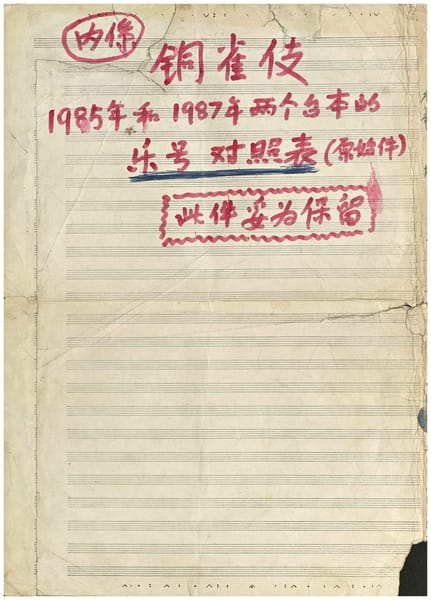 内保
铜雀伎
1985年和1987年两个台本的
乐号对照表(原始件)
此件妥为保留